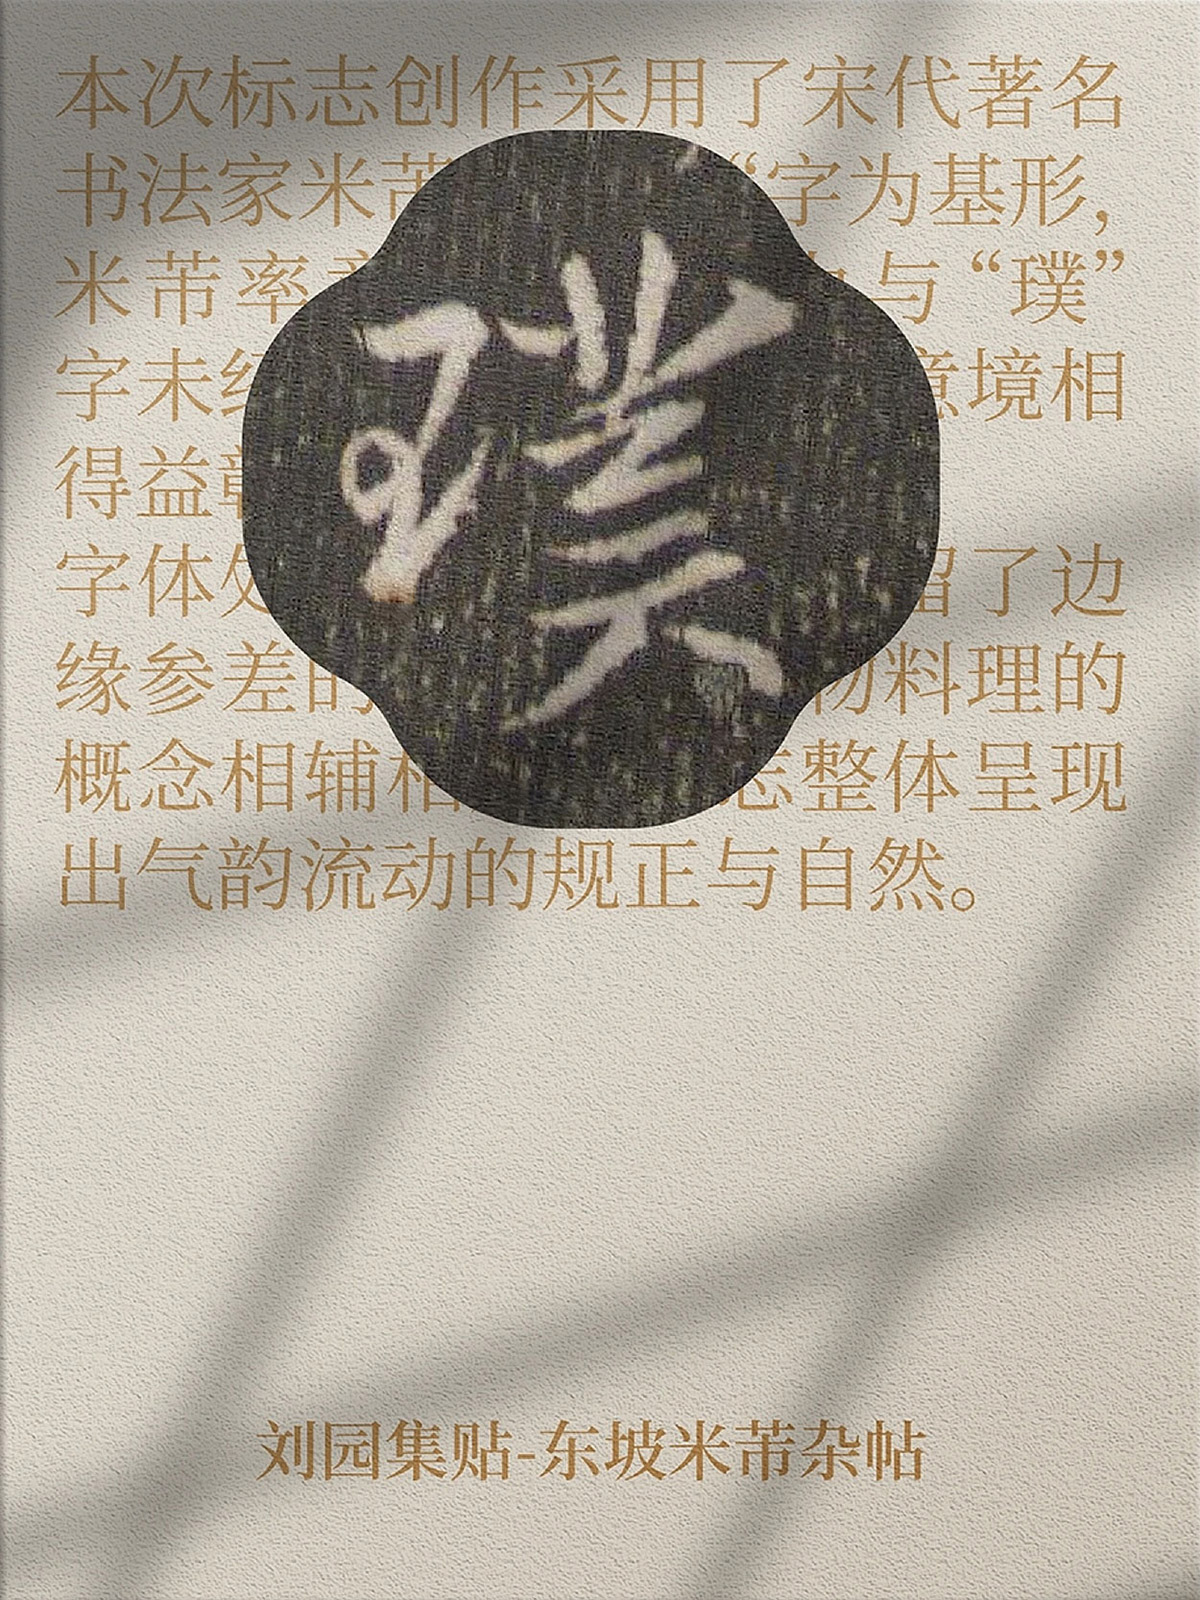 本次标志创作采用了宋代著名
书法家米芾 “字为基形，
米芾率 与“璞”
字未 意境相
得益
璞
字体处 留了边
缘参差的 物料理的
概念相辅相 志整体呈现
出气韵流动的规正与自然。
刘园集贴-东坡米芾杂帖